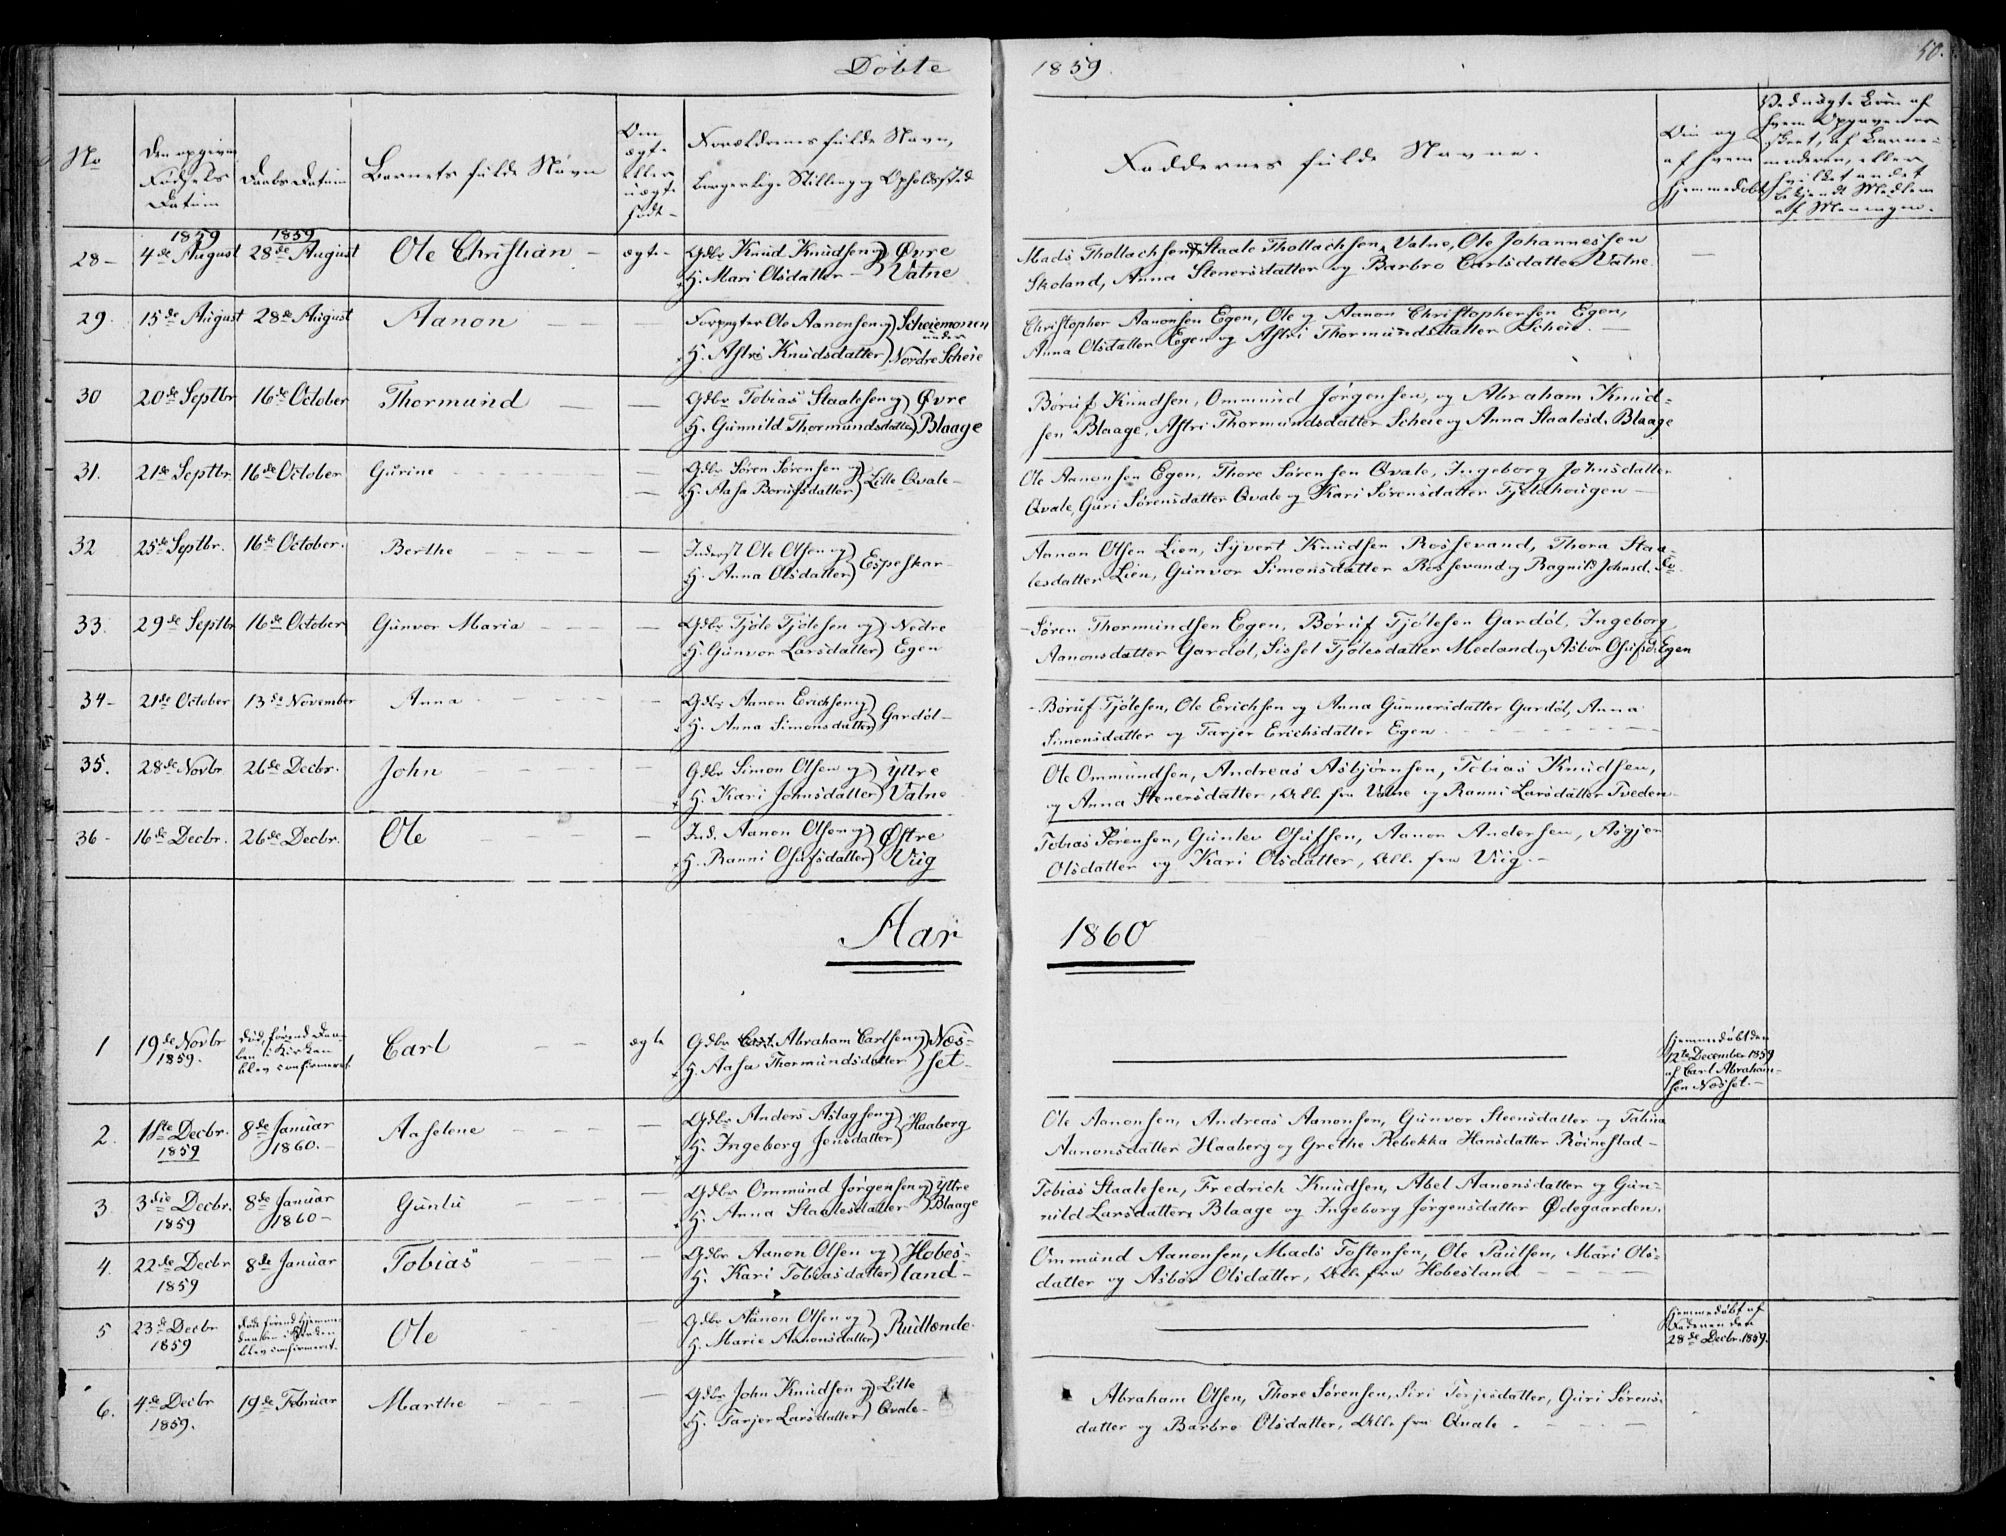 Döbte 1859. 50.
No
Den opgivne Födsels Datum
Daabs Datum
Barnets fulde Navn
Om ægte eller uægte födt
Forældrenes fulde Navn, borgerlige Stilling og Opholdssted
Faddernes fulde Navne.
Om og af hvem hjemmedöbt
Ved uægte Börn af hvem Opgaven er skeet, af Barnemoderen, eller hvilket andet bekjendt Medlem af Menigen.
28 1859 4de August 1859 28de August Ole Christian ægte Gdbr Knud Knudsen og Øvre
H. Mari Olsdatter Vatne
Mads Thollachsen, Staale Thollachsen Vatne, Ole Johannessen
Skoland, Anna Stenersdatter og Barbro Carlsdatter Vatne
29. 15de August 28de August Aanon Forpagter Ole Aanonsen og Scheiemonen under
H. Astri Knudsdatter Nordre Scheie
Christopher Aanonsen Egen, Ole og Aanon Christophersen Egen,
Anna Olsdatter Egen og Astri Thormundsdatter Scheie.
30 20de Septbr 16de October Thormund Gdbr Tobias Staalesen og Øvre
H. Gunnild Thormundsdatter Blaage
Böruf Knudsen, Ommund Jörgensen, og Abraham Knud-
sen Blaage, Astri Thormundsdatter Scheie og Anna Staalesd. Blaage
31. 21de Septbr. 16de October Gurine Gdbr Sören Sörensen og Lille Qvale
H. Aasa Borufsdatter
Ole Aanonsen Egen, Thore Sörensen Qvale, Ingeborg Johnsdatter
Qvale, Guri Sörensdatter Qvale og Kari Sörensdatter Fjeldhougen
32 25de Septbr. 16de October. Berthe Inderst Ole Olsen og Espeskar
H. Anna Olsdatter
Aanon Olsen Lien, Syvert Knudsen Rossevand, Thora Staa-
lesdatter Lien, Gunvor Simonsdatter Rossevand og Ragnild Johnsd. Do
33. 29de Septbr 16de October Gunvor Maria Gdbr Tjöle Tjölesen og Nedre
H. Gunvor Larsdatter Egen
Sören Thormundsen Egen, Böruf Tjölesen Gardöl, Ingeborg
Aanonsdatter Gardöl, Sissel Tjölesdatter Meeland og Asbor Osufsd. Egen
34 21de October 13de November Anna Gdbr Aanon Erichsen og Gardöl
H. Anna Simonsdatter
Böruf Tjölesen, Ole Erichsen og Anna Gunnersdatter Gardöl, Anna
Simonsdatter og Tarjer Erichsdatter Egen
35. 28de Novbr 26de Decbr. John Gdbr Simon Olsen og Yttre
H. Kari Johnsdatter Vatne
Ole Ommundsen, Andreas Asbjörnsen, Tobias Knudsen,
og Anna Stenersdatter, Alle fra Vatne og Ranni Larsdatter Tveden
36 16de Decbr. 26de Decbr. Ole Ind. Aanon Olsen og Østre
H. Ranni Osufsdatter Viig
Tobias Sörensen, Gunlev Osufsen, Aanon Andersen, Asgjer
Olsdatter og Kari Olsdatter, Alle fra Viig.
Aar 1860
1 19de Novbr 1859. död, förend Daaben i Kirken blev confirmeret Carl ægte Gdbr Abraham Carlsen og Næs-
H. Aasa Thormundsdatter set
hjemmedöbt den
12te December 1859
af Carl Abraham-
sen Næsset.
2. 1ste Decbr. 1859 8de Januar 1860. Aaselene Gdbr Anders Aslagsen og Haaberg
H. Ingeborg Jensdatter
Ole Aanonsen, Andreas Aanonsen, Gunvor Steensdatter og Talina
Aanonsdatter Haaberg og Grethe Rebekka Hansdatter Röinestad
3. 3die Decbr. 1859 8de Januar 1860 Gunlu Gdbr Ommund Jörgensen og Yttre
H. Anna Staalesdatter Blaage
Tobias Staalesen, Fredrich Knudsen, Abel Aanonsdatter og Gun-
nild Larsdatter, Blaage og Ingeborg Jörgensdatter Ødegaarden.
4. 22de Decbr 1859 8de Januar Tobias Gdbr Aanon Olsen og Hobes-
H. Kari Tobiasdatter land
Ommund Aanonsen, Mads Tostensen, Ole Paulsen, Mari Ols-
datter og Asbör Olsdatter, Alle fra Hobesland
5 23de Decbr 1859 Död förend Hjemmedaaben i Kirken blev confirmeret. Ole Gdbr Aanon Olsen og Rudlende
H. Marie Aanonsdatter
hjemmedöbt af
Faderen den
28de Decbr. 1859.
6. 4de Decbr 1859. 19de Februar Marthe Gdbr John Knudsen og Lille
H. Tarjer Larsdatter Qvale
Abraham Olsen, Thore Sörensen, Siri Terjesdatter, Guri Sörens-
datter og Barbro Olsdatter, Alle fra Qvale